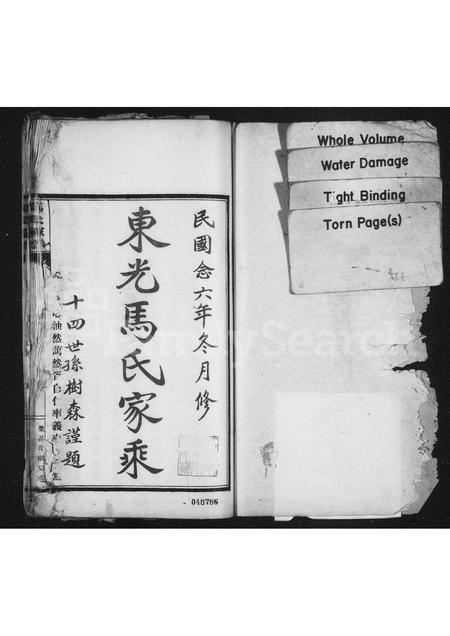 民國念六年冬月修
東光馬氏家乘
十四世孫樹森謹題
048786
Whole Volume
Water Damage
Tight Binding
Torn Page(s)
FamilySearch